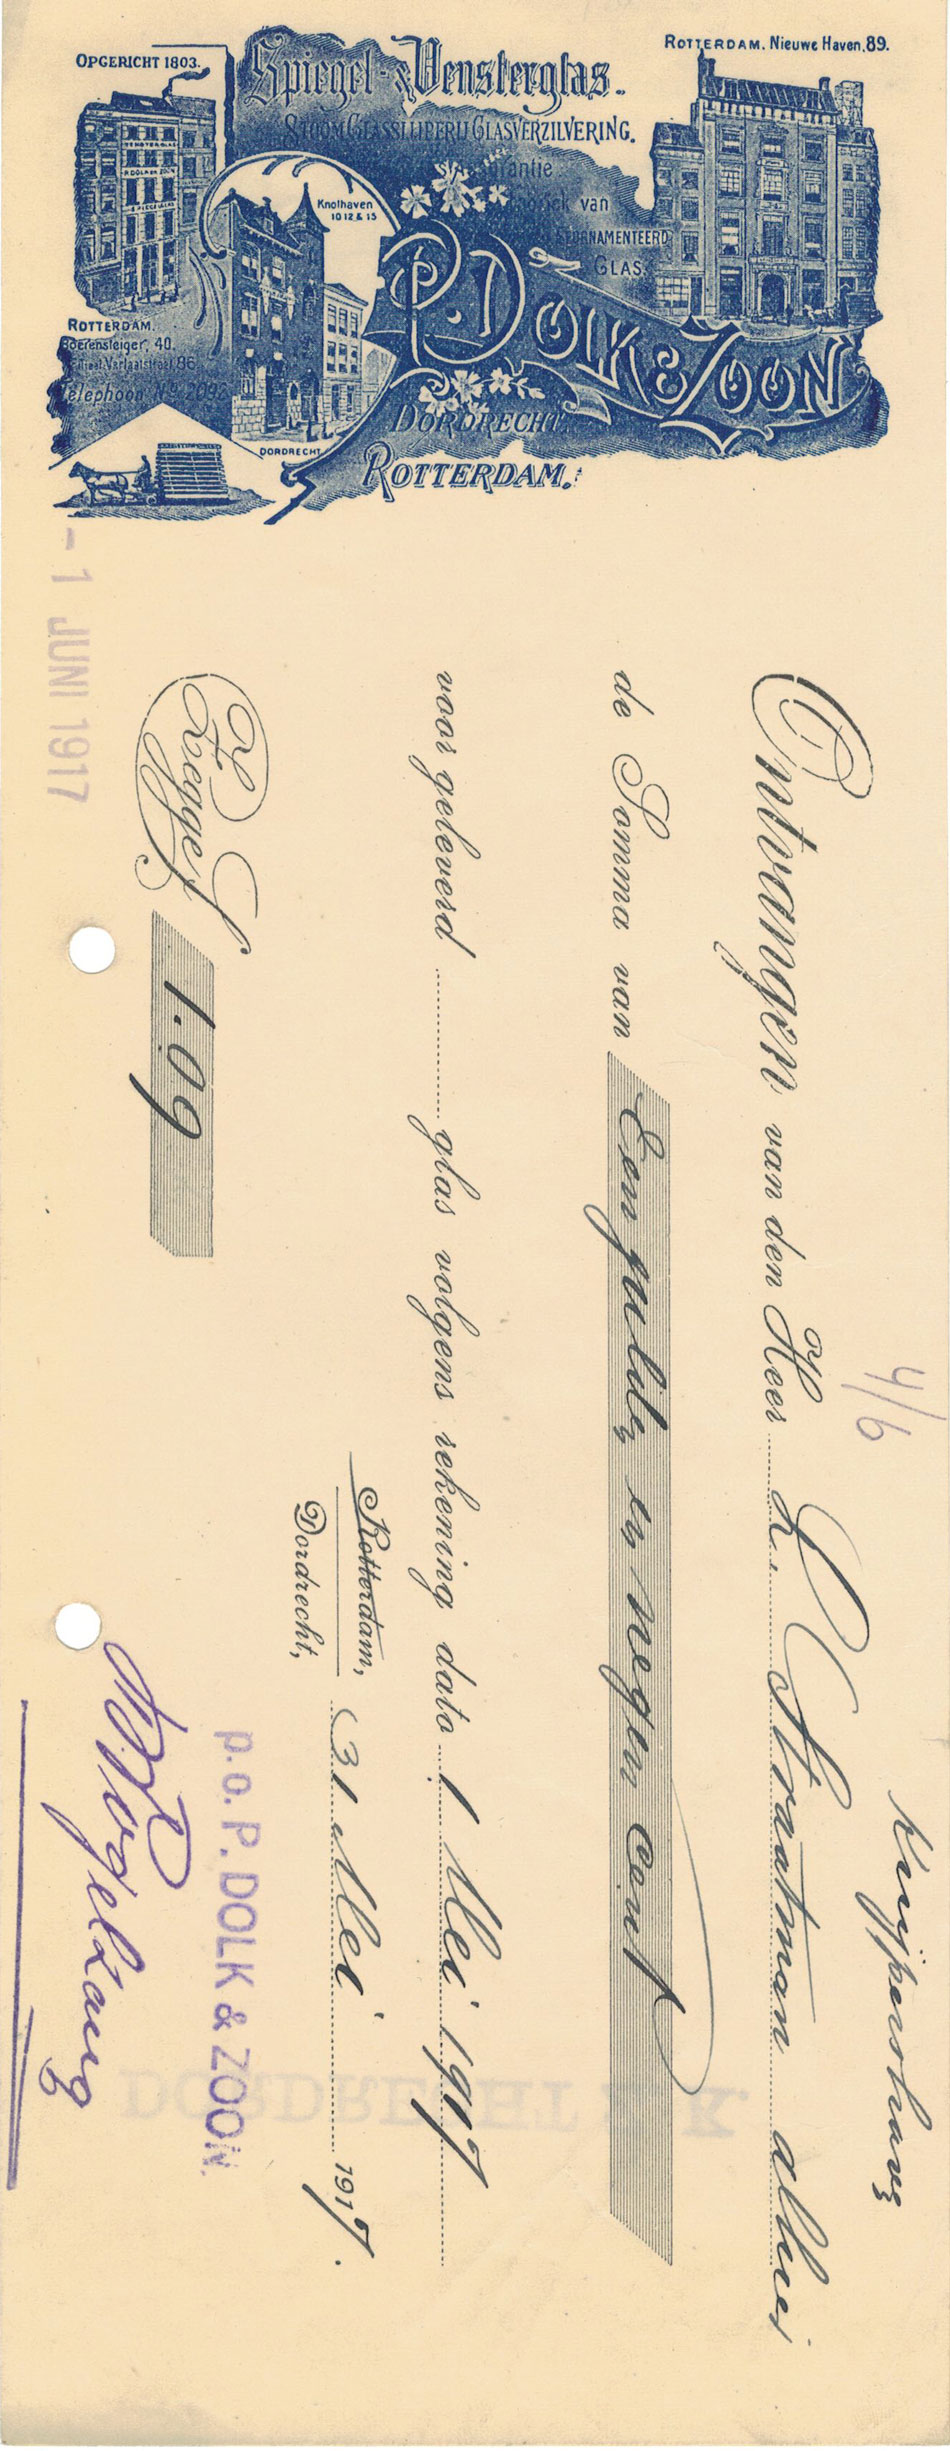 OPGERICHT 1803.
Spiegel- & Vensterglas.
ROTTERDAM. Nieuwe Haven, 89.
STOOM GLASSLIJPERIJ GLASVERZILVERING.
VENSTERGLAS
P. DOLK EN ZOON
SPIEGELGLAS
Knolhaven
10 12 & 15
van
GEORNAMENTEERD
GLAS.
P. DOLK & ZOON
ROTTERDAM.
Boerensteiger, 40.
Telephoon No. 2092
DORDRECHT
DORDRECHT.
ROTTERDAM.
- 1 JUNI 1917
4/6
Ontvangen van den Heer L. Stratman
de Somma van Een gulden en Negen Cent
voor geleverd glas volgens rekening dato 1 Mei 1917
Rotterdam,
Dordrecht,
31 Mei 1917.
Zegge f 1.09
p.o. P. DOLK & ZOON.
Vogelzang